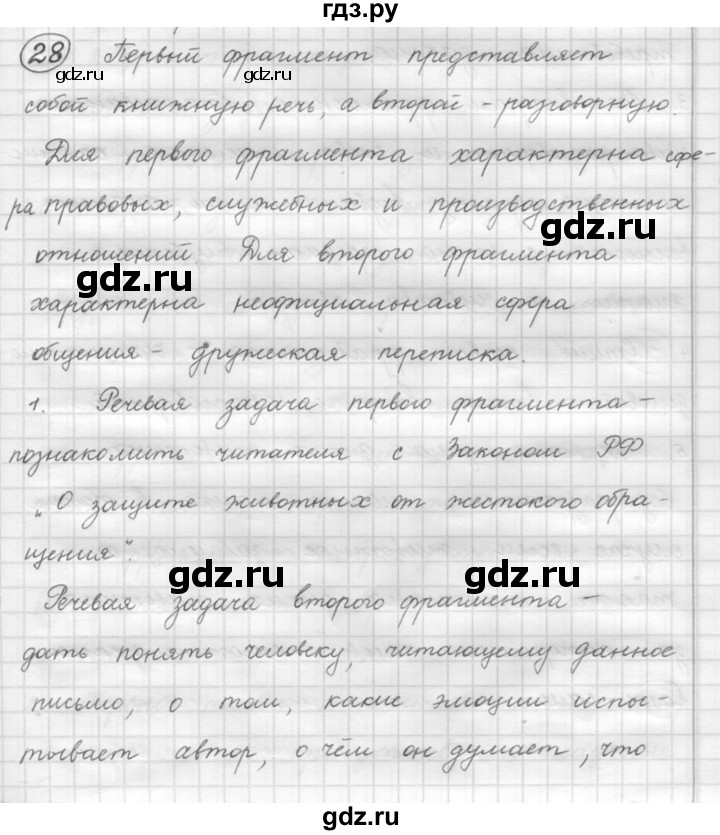 гдз.ру
28 Первый фрагмент представляет
gdz.ru gdz.ru
собой книжную речь, а второй - разговорную.
Для первого фрагмента характерна сфе-
ра правовых, служебных и производственных
gdz.ru
отношений. Для второго фрагмента
gdz.ru
характерна неофициальная сфера
общения - дружеская переписка.
1. Речевая задача первого фрагмента -
познакомить читателя с Законом РФ
„О защите животных от жестокого обра-
щения“.
gdz.ru gdz.ru
Речевая задача второго фрагмента -
дать понять человеку, читающему данное
письмо, о том, какие эмоции испы-
тывает автор, о чём он думает, что
gdz.ru gdz.ru